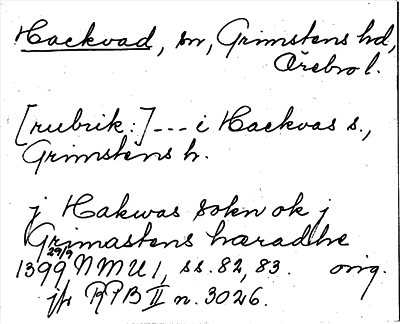 Hackvad, sn, Grimstens hd,
Örebro l.
[rubrik:] --- i Hackvas s.,
Grimstens h.
j Hakwas sokn ok j
Grimastens hæradhe
1399 29/9 NMU 1, ss. 82, 83. orig.
jfr RPB II n. 3026.